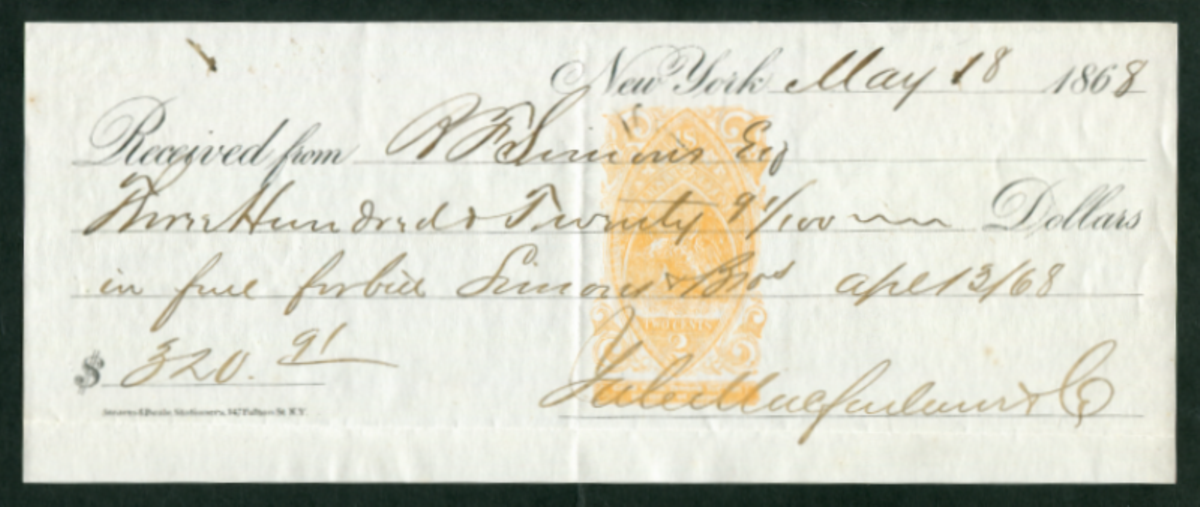 New York May 18 1868
Received from R F Simons Esq
Three Hundred & Twenty 91/100 Dollars
in full for bill Simons & Bros Apl 13/68
TWO CENTS
2
$ 320.91
Macfarlane & Co
Stationers, 147 Fulton St N.Y.